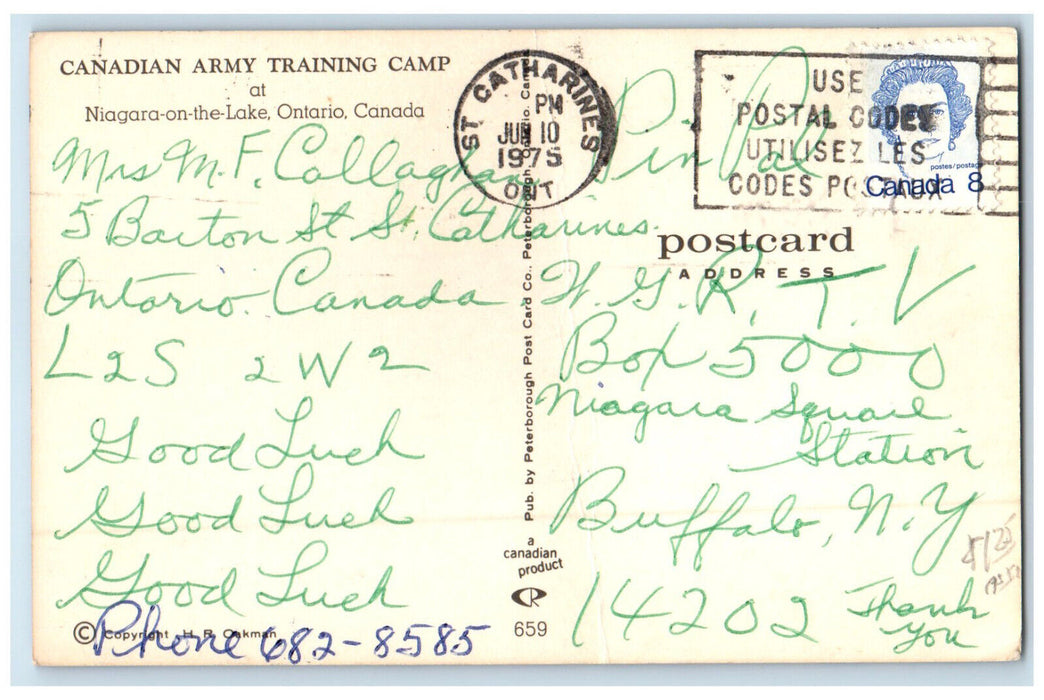 CANADIAN ARMY TRAINING CAMP
at
Niagara-on-the-Lake, Ontario, Canada
Mrs M. F. Callaghan
5 Barton St St. Catharines.
Ontario. Canada
L2S 2W2
Good Luck
Good Luck
Good Luck
Phone 682-8585
© Copyright H. R. Oakman
Pub. by Peterborough Post Card Co., Peterborough, Ontario, Canada
a
canadian
product
CR
659
ST CATHARINES
PM
JUN 10
1975
ONT
USE
POSTAL CODES
UTILISEZ LES
CODES POSTAUX
postes/postage
Canada 8
postcard
ADDRESS
Pin Pal
W. G. R. T. V
Box 5000
Niagara Square
Station
Buffalo, N.Y
14202
Thank
You